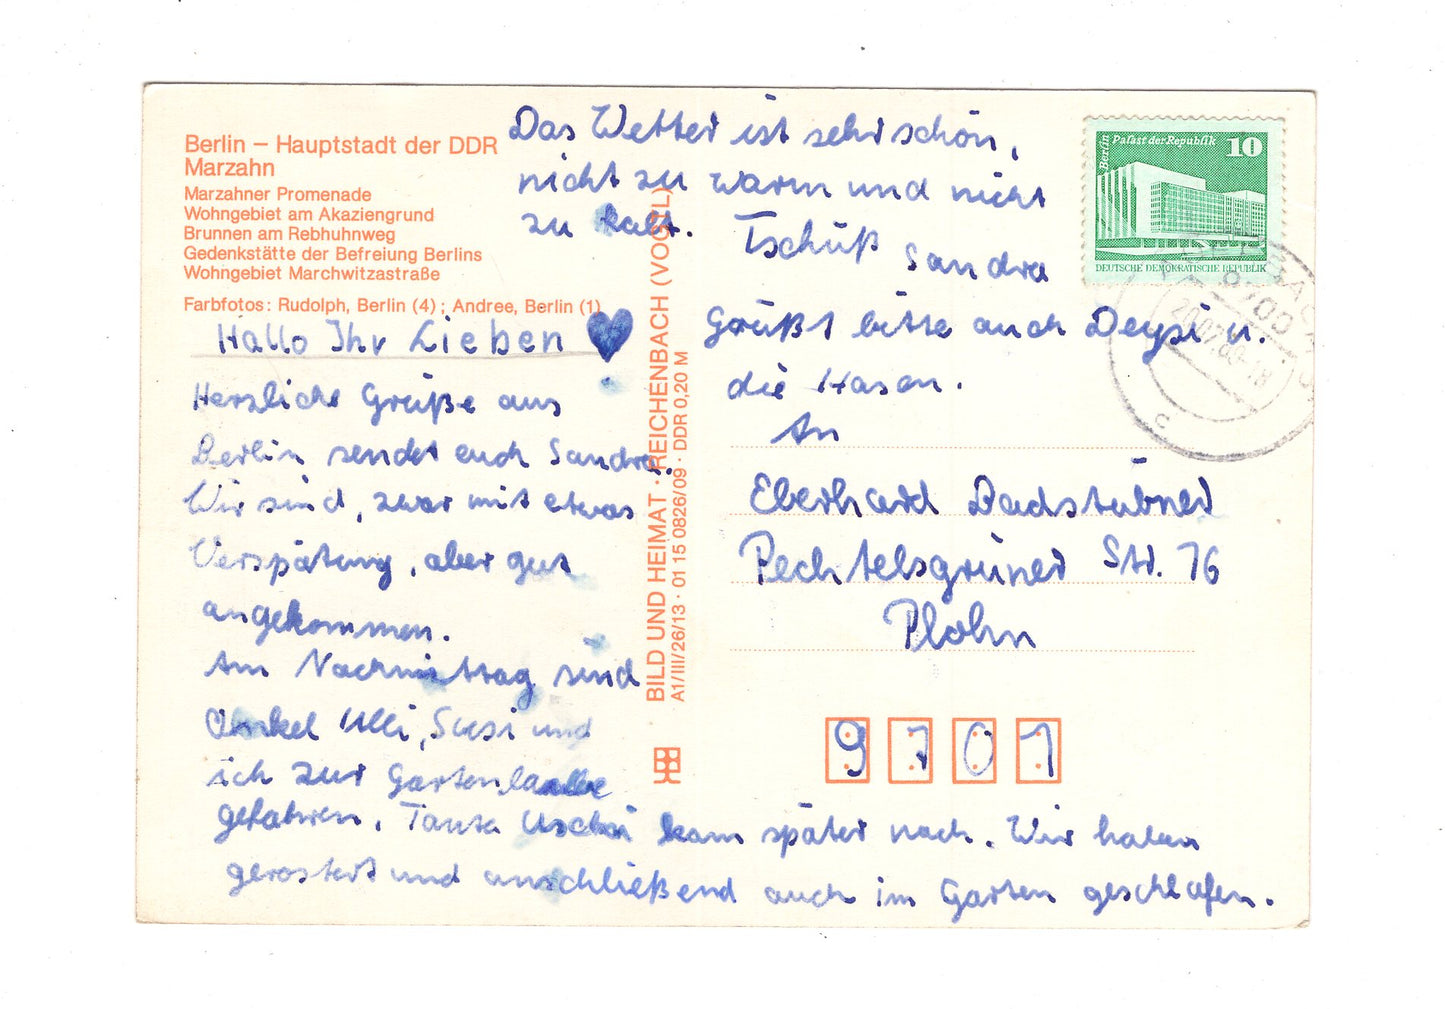 Berlin – Hauptstadt der DDR
Marzahn
Marzahner Promenade
Wohngebiet am Akaziengrund
Brunnen am Rebhuhnweg
Gedenkstätte der Befreiung Berlins
Wohngebiet Marchwitzastraße
Farbfotos: Rudolph, Berlin (4); Andree, Berlin (1)
Hallo Ihr Lieben
Herzliche Grüße aus
Berlin sendet euch Sandra.
Wir sind, zwar mit etwas
Verspätung, aber gut
angekommen.
Am Nachmittag sind
Onkel Ulli, Susi und
ich zur Gartenlaube
gefahren. Tante Uschi kam später nach. Wir haben
gerostert und anschließend auch im Garten geschlafen.
Das Wetter ist sehr schön,
nicht zu warm und nicht
zu kalt. Tschüß
Sandra
Grüßt bitte auch Deysi u.
die Hasen.
BILD UND HEIMAT · REICHENBACH (VOGTL)
A1/III/26/13 · 01 15 0826/09 · DDR 0,20 M
Berlin Palast der Republik 10
DEUTSCHE DEMOKRATISCHE REPUBLIK
9700
c
An
Eberhard Badstübner
Pechtelsgrüner Str. 76
Plohn
9701